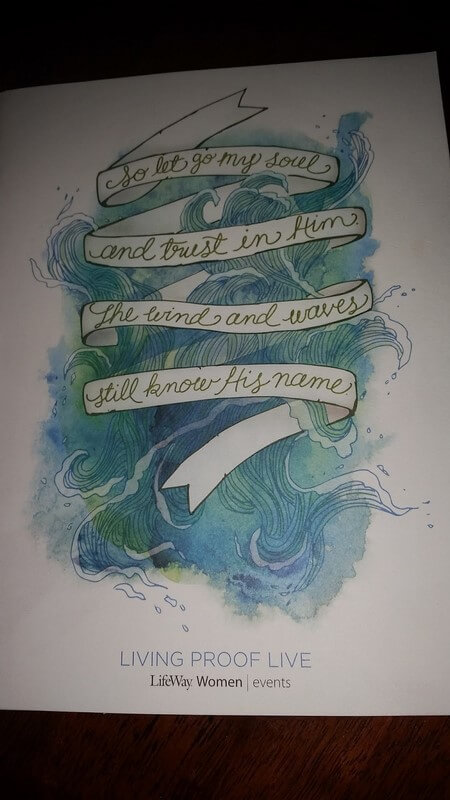 So let go my soul
and trust in Him
The wind and waves
still know His name
LIVING PROOF LIVE
LifeWay Women | events